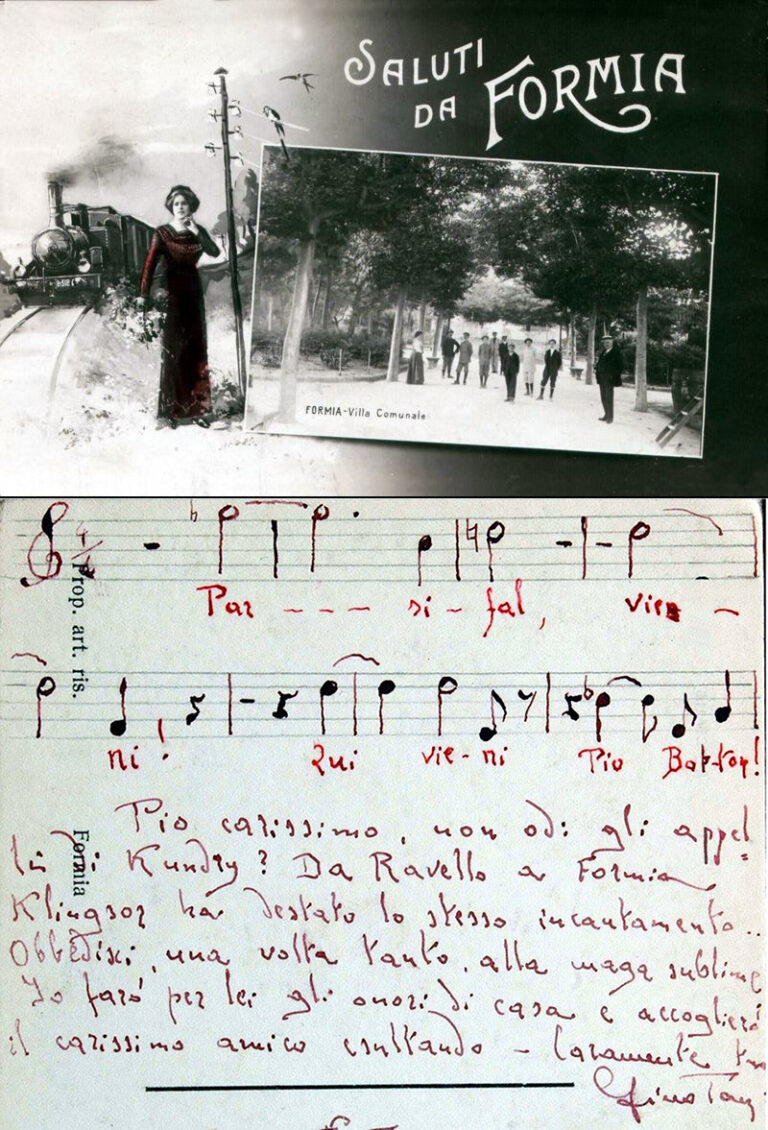 SALUTI
DA FORMIA
FORMIA-Villa Comunale
Prop. art. ris.
Par - - - - si - fal, vien -
ni! Qui vie-ni Pio Bat-tor!
Formia
Pio carissimo, non odi gli appel=
li di Kundry? Da Ravello a Formia
Klingsor ha destato lo stesso incantamento..
Obbedisci, una volta tanto, alla maga sublime
Io farò per lei gli onori di casa e accoglierò
il carissimo amico esultando - Caramente tuo
Gino